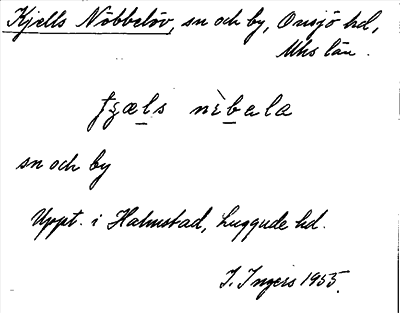 Kjells Nöbbelöv, sn och by, Onsjö hd,
Mhs län.
sn och by
Uppt. i Halmstad, Luggude hd.
I. Ingers 1955.